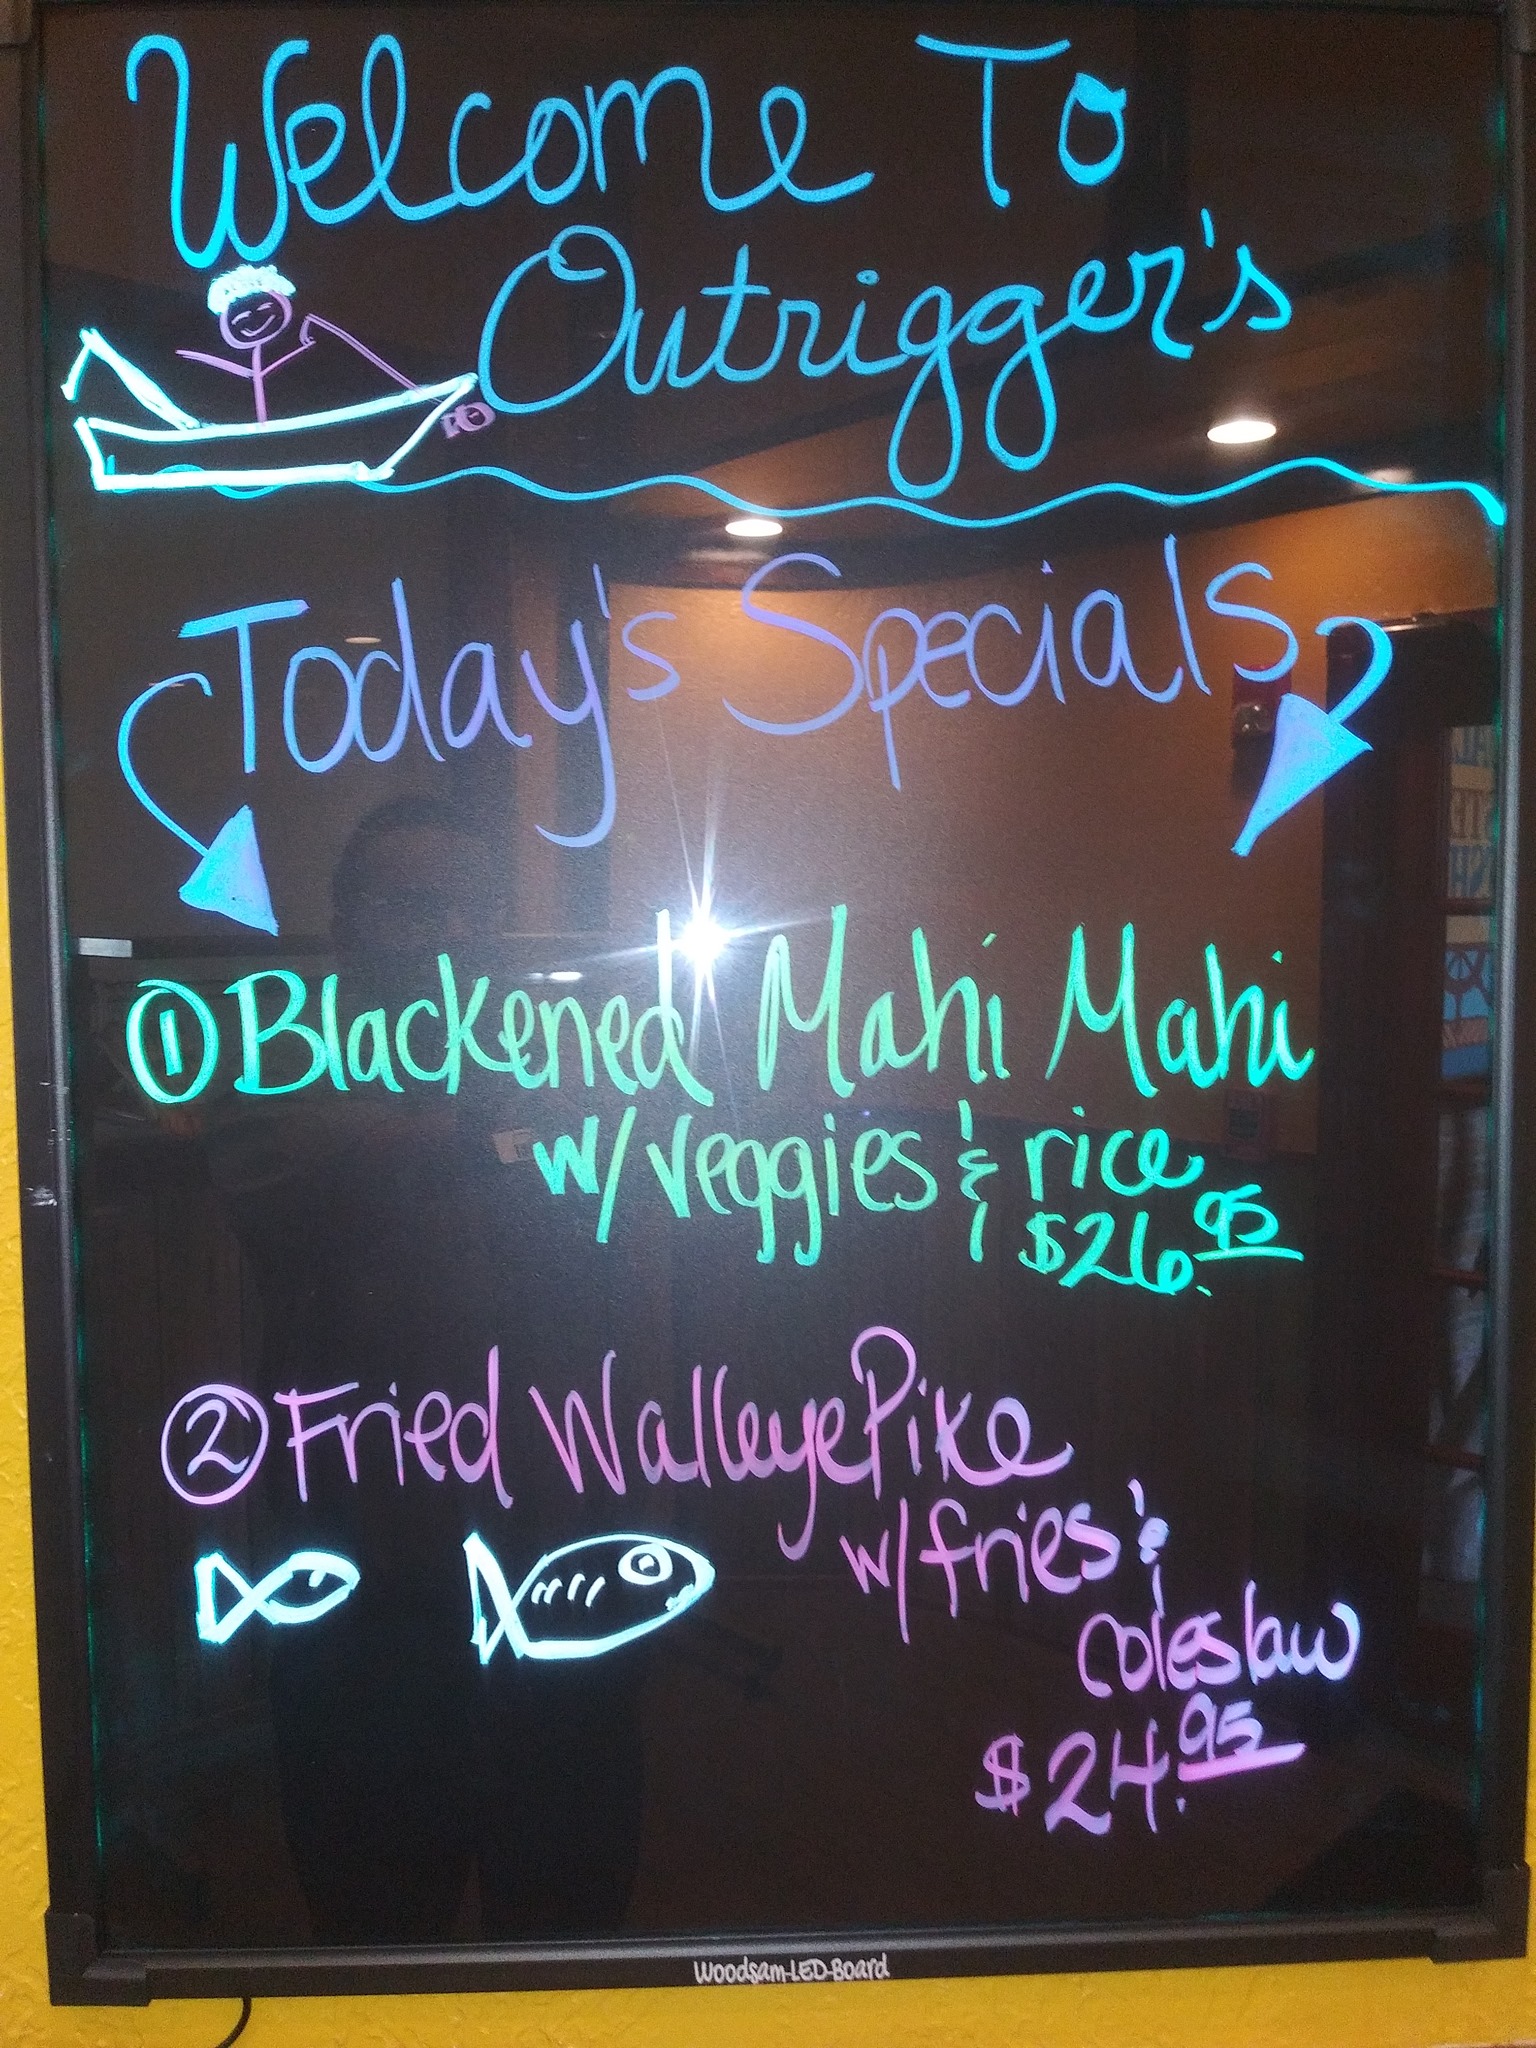 Welcome To
Outrigger's
Today's Specials
① Blackened Mahi Mahi
w/ veggies & rice
$26.95
② Fried Walleye Pike
w/ fries &
coleslaw
$24.95
Woodsam-LED-Board